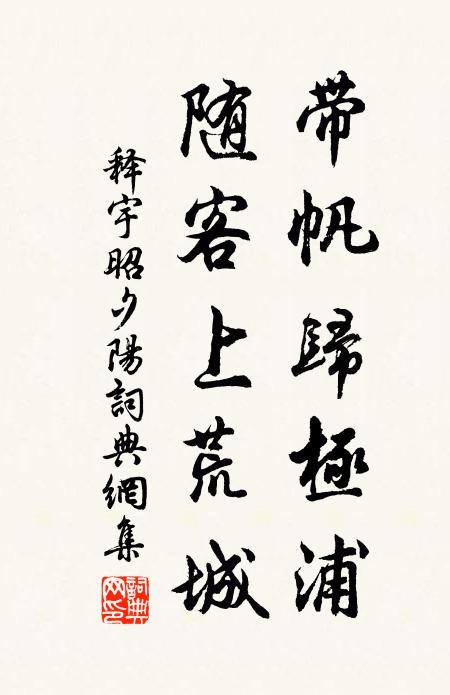 带帆歸極浦
随客上荒城
释宇昭夕陽詞典網集
詞典網印